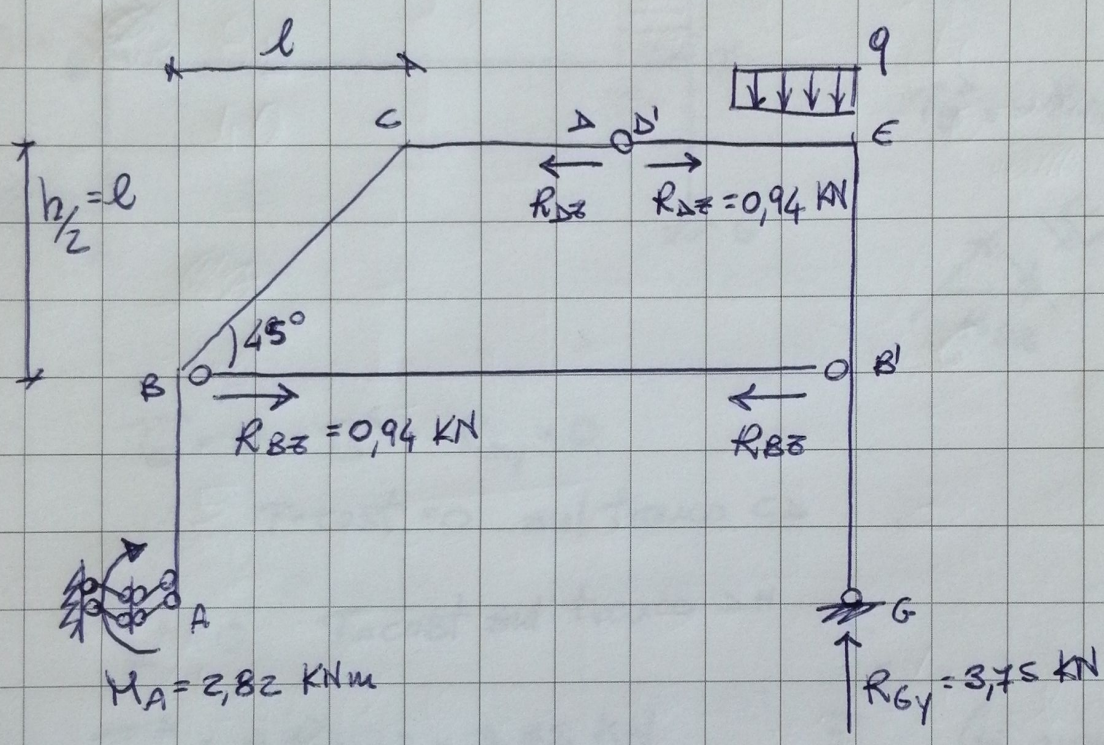 l
q
C
D
D'
E
h/2 = l
R_Dz
R_Dz = 0,94 KN
45°
B
B'
R_Bz = 0,94 KN
R_Bz
A
G
M_A = 2,82 KNm
R_Gy = 3,75 KN